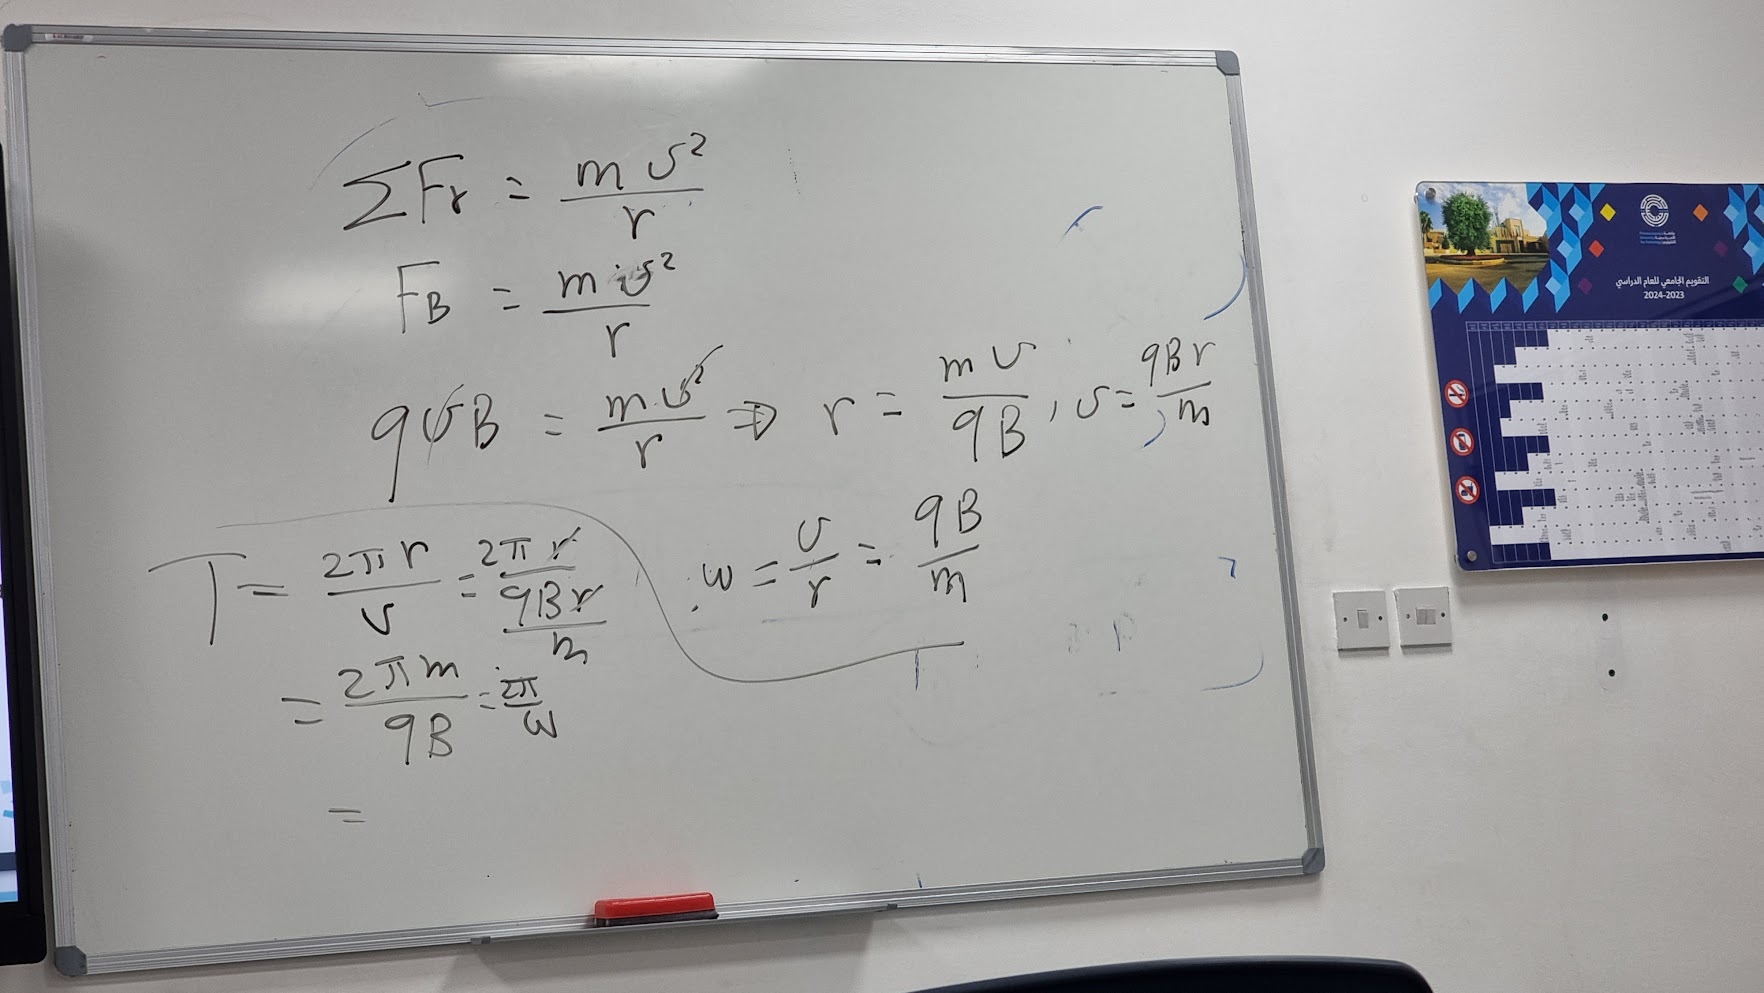 ΣFr = mv²/r
FB = mv²/r
qvB = mv²/r ⇒ r = mv/qB , v = qBr/m
ω = v/r = qB/m
T = 2πr/v = 2πr/(qBr/m)
= 2πm/qB = 2π/ω
=
التقويم الجامعي للعام الدراسي
2024-2023